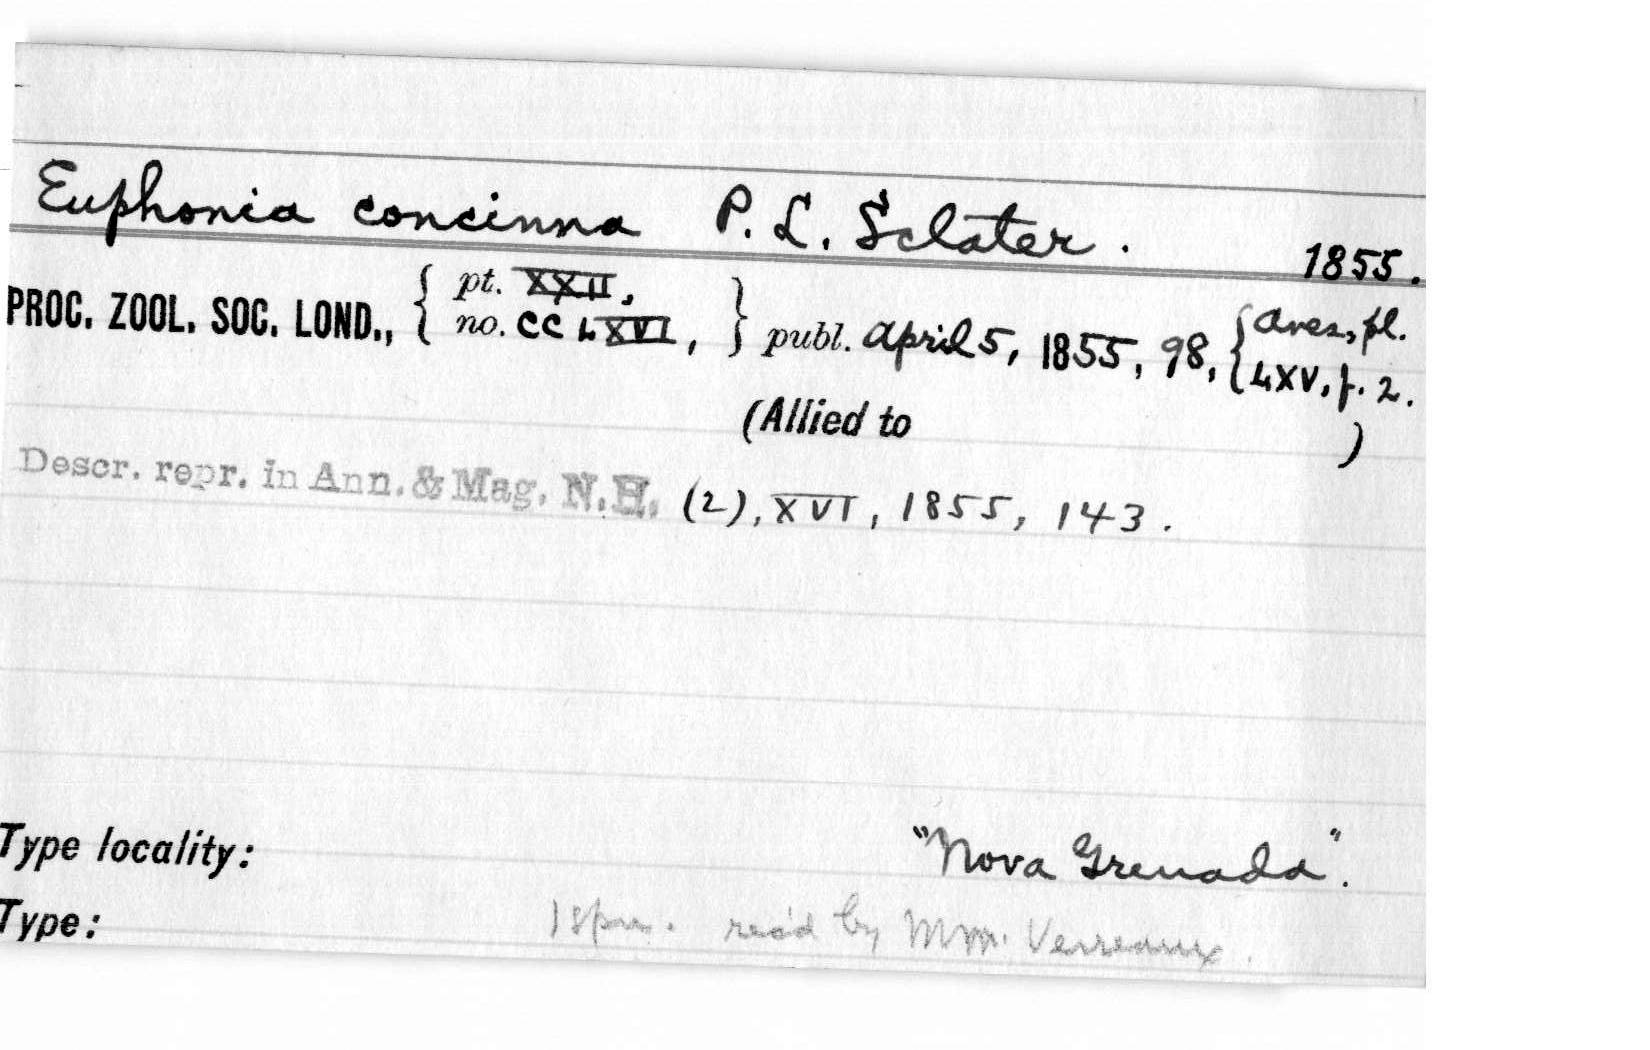 Euphonia concinna P. L. Sclater. 1855.
PROC. ZOOL. SOC. LOND., { pt. XXII, no. CCLXVI, } publ. April 5, 1855, 98, { Aves, pl. LXV, f. 2.
(Allied to )
Descr. repr. in Ann. & Mag. N.H. (2), XVI, 1855, 143.
Type locality: "Nova Grenada".
Type: 1 spm. rec'd by MM. Verreaux.